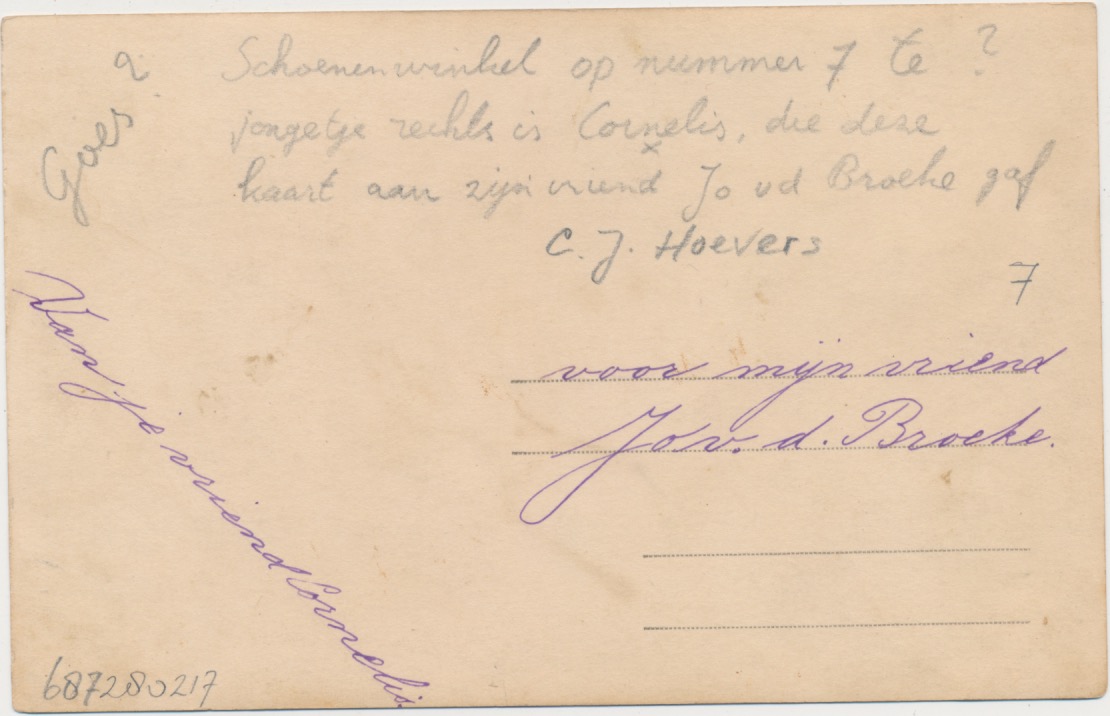 Goes ?
Schoenenwinkel op nummer 7 te ?
jongetje rechts is Cornelis, die deze
kaart aan zijn vriend x Jo vd Broeke gaf
C. J. Hoevers
7
voor mijn vriend
Jo v. d. Broeke.
Van je vriend Cornelis.
687280217